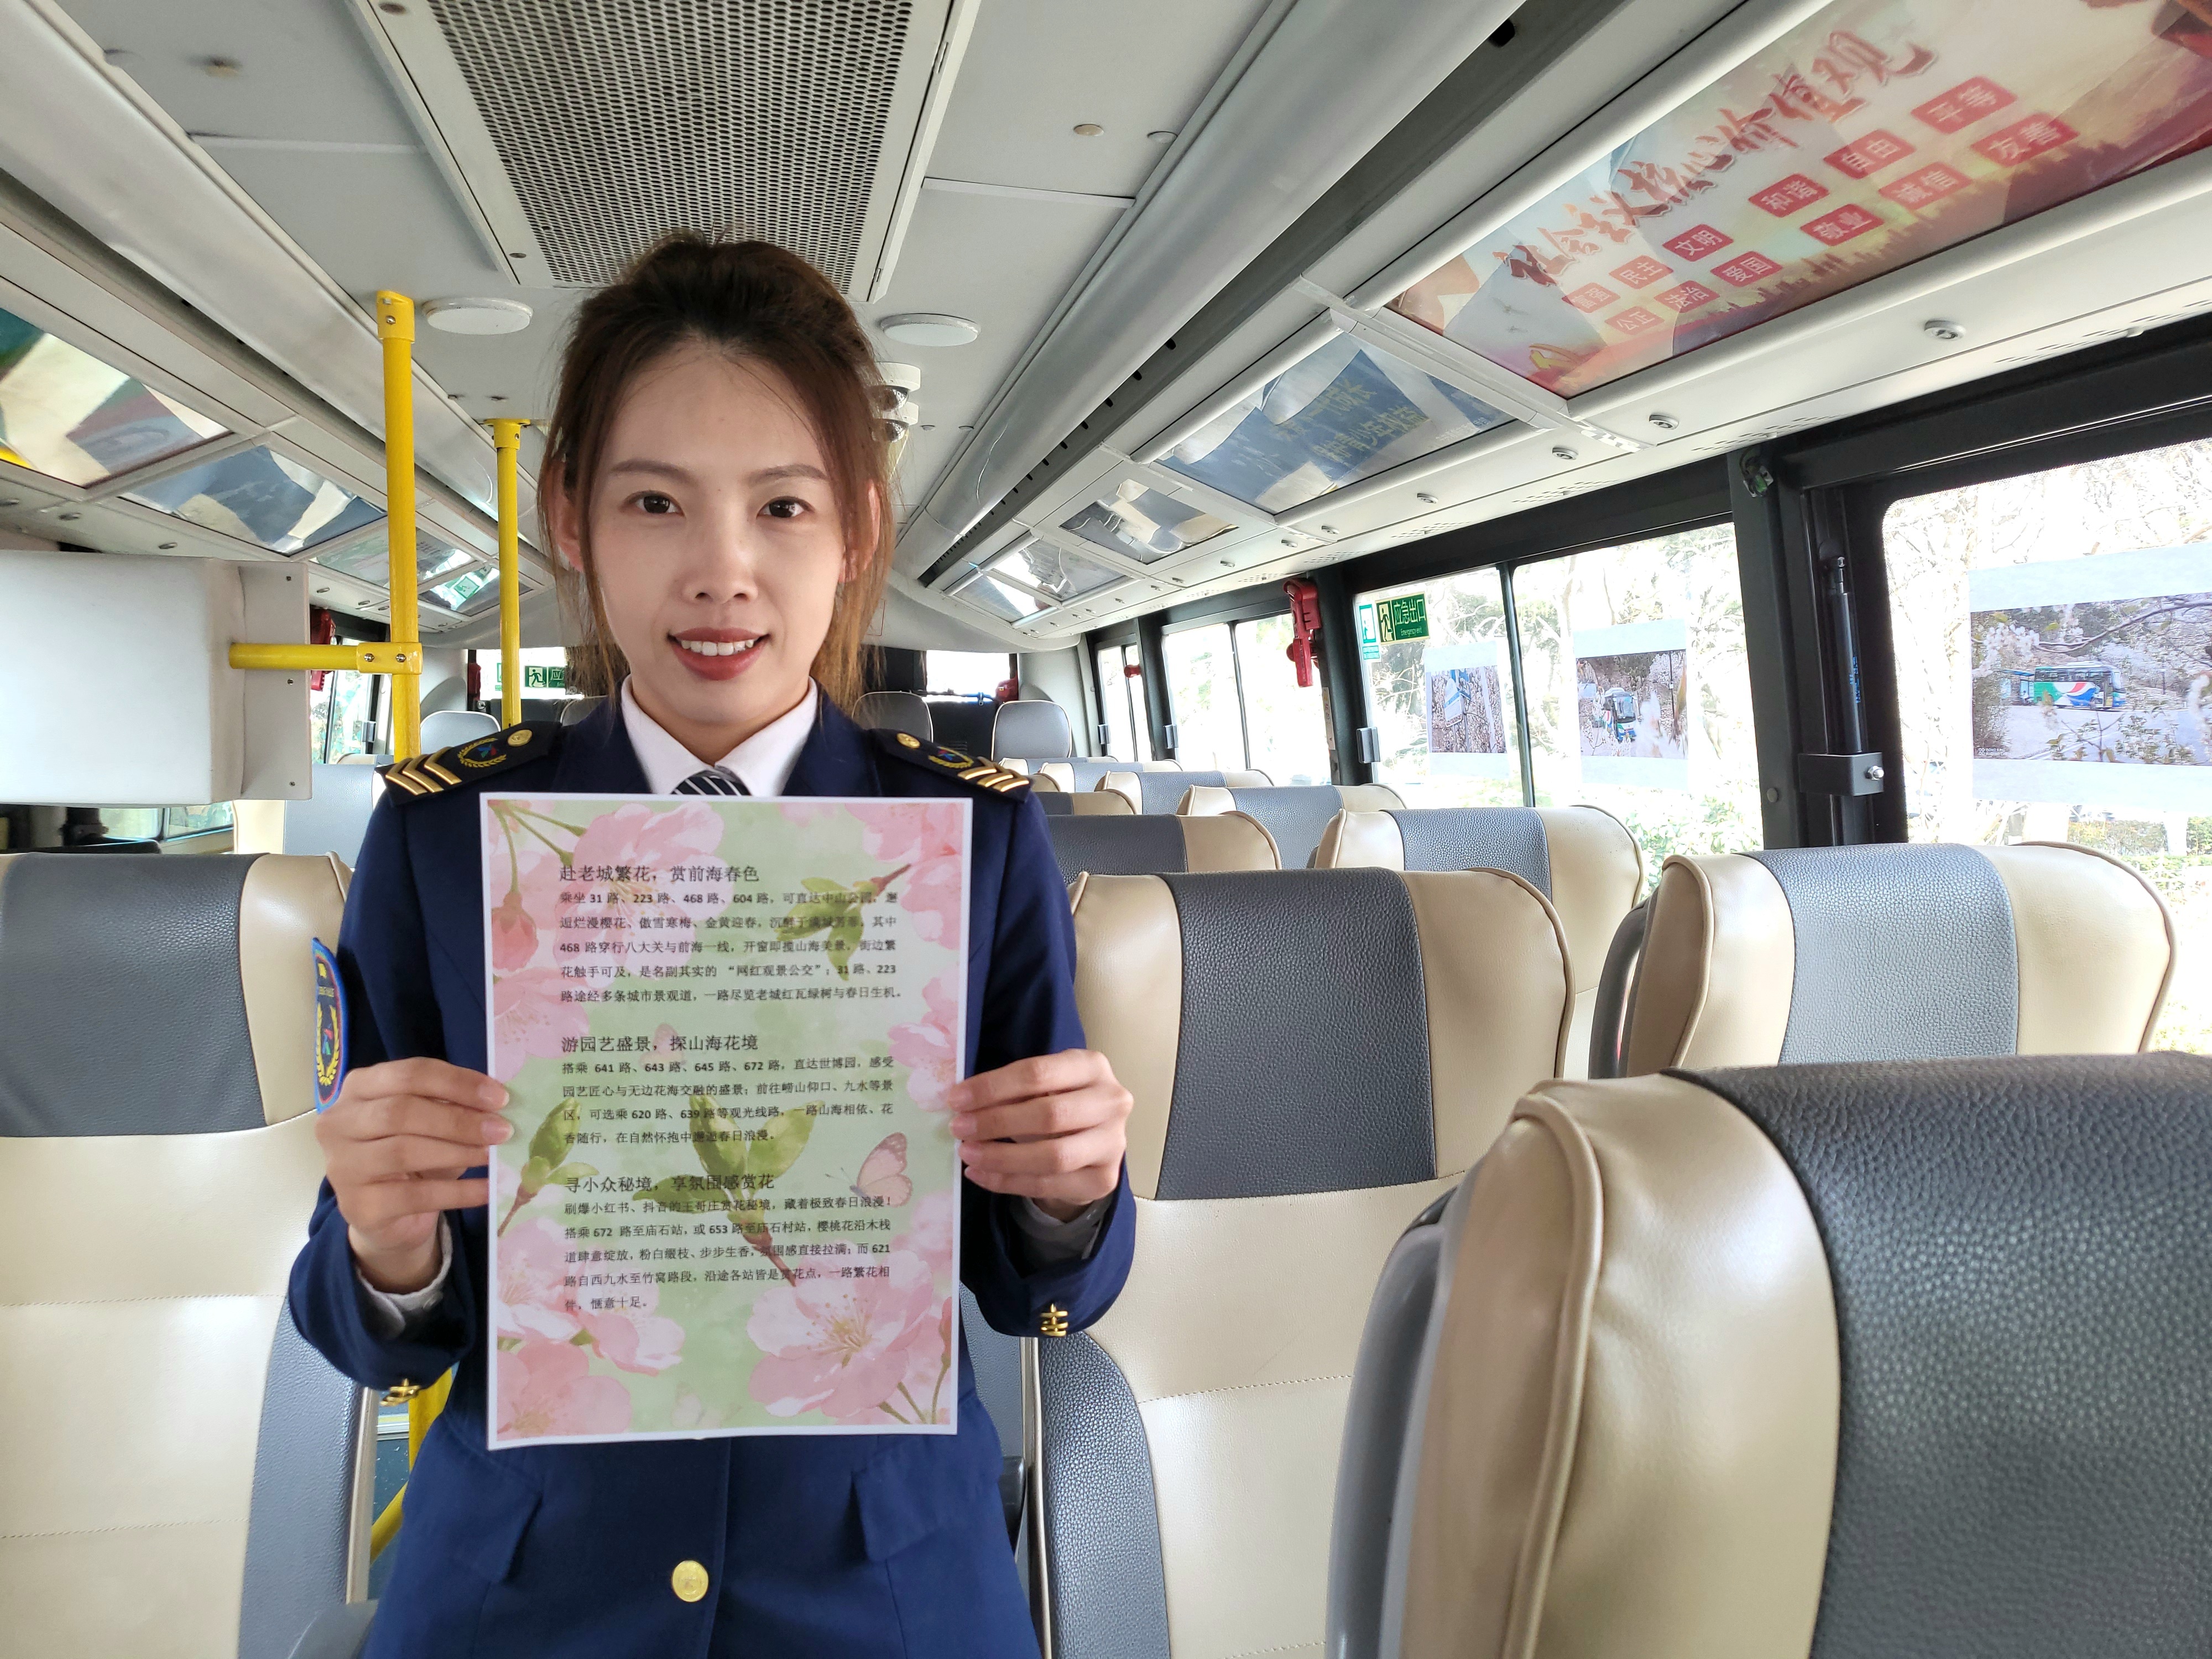 社会主义核心价值观
民主 文明 和谐 自由 平等
公正 法治 爱国 敬业 诚信 友善
应急出口
Emergency exit
应
赴老城繁花，赏前海春色
乘坐 31 路、223 路、468 路、604 路，可直达中山公园，邂
逅烂漫樱花、傲雪寒梅、金黄迎春，沉醉于满城芳菲。其中
468 路穿行八大关与前海一线，开窗即揽山海美景，街边繁
花触手可及，是名副其实的 “网红观景公交”；31 路、223
路途经多条城市景观道，一路尽览老城红瓦绿树与春日生机。
游园艺盛景，探山海花境
搭乘 641 路、643 路、645 路、672 路，直达世博园，感受
园艺匠心与无边花海交融的盛景；前往崂山仰口、九水等景
区，可选乘 620 路、639 路等观光线路，一路山海相依、花
香随行，在自然怀抱中邂逅春日浪漫。
寻小众秘境，享氛围感赏花
刷爆小红书、抖音的王哥庄赏花秘境，藏着极致春日浪漫！
搭乘 672 路至庙石站，或 653 路至庙石村站，樱桃花沿木栈
道肆意绽放，粉白缀枝、步步生香，氛围感直接拉满；而 621
路自西九水至竹窝路段，沿途各站皆是赏花点，一路繁花相
伴，惬意十足。